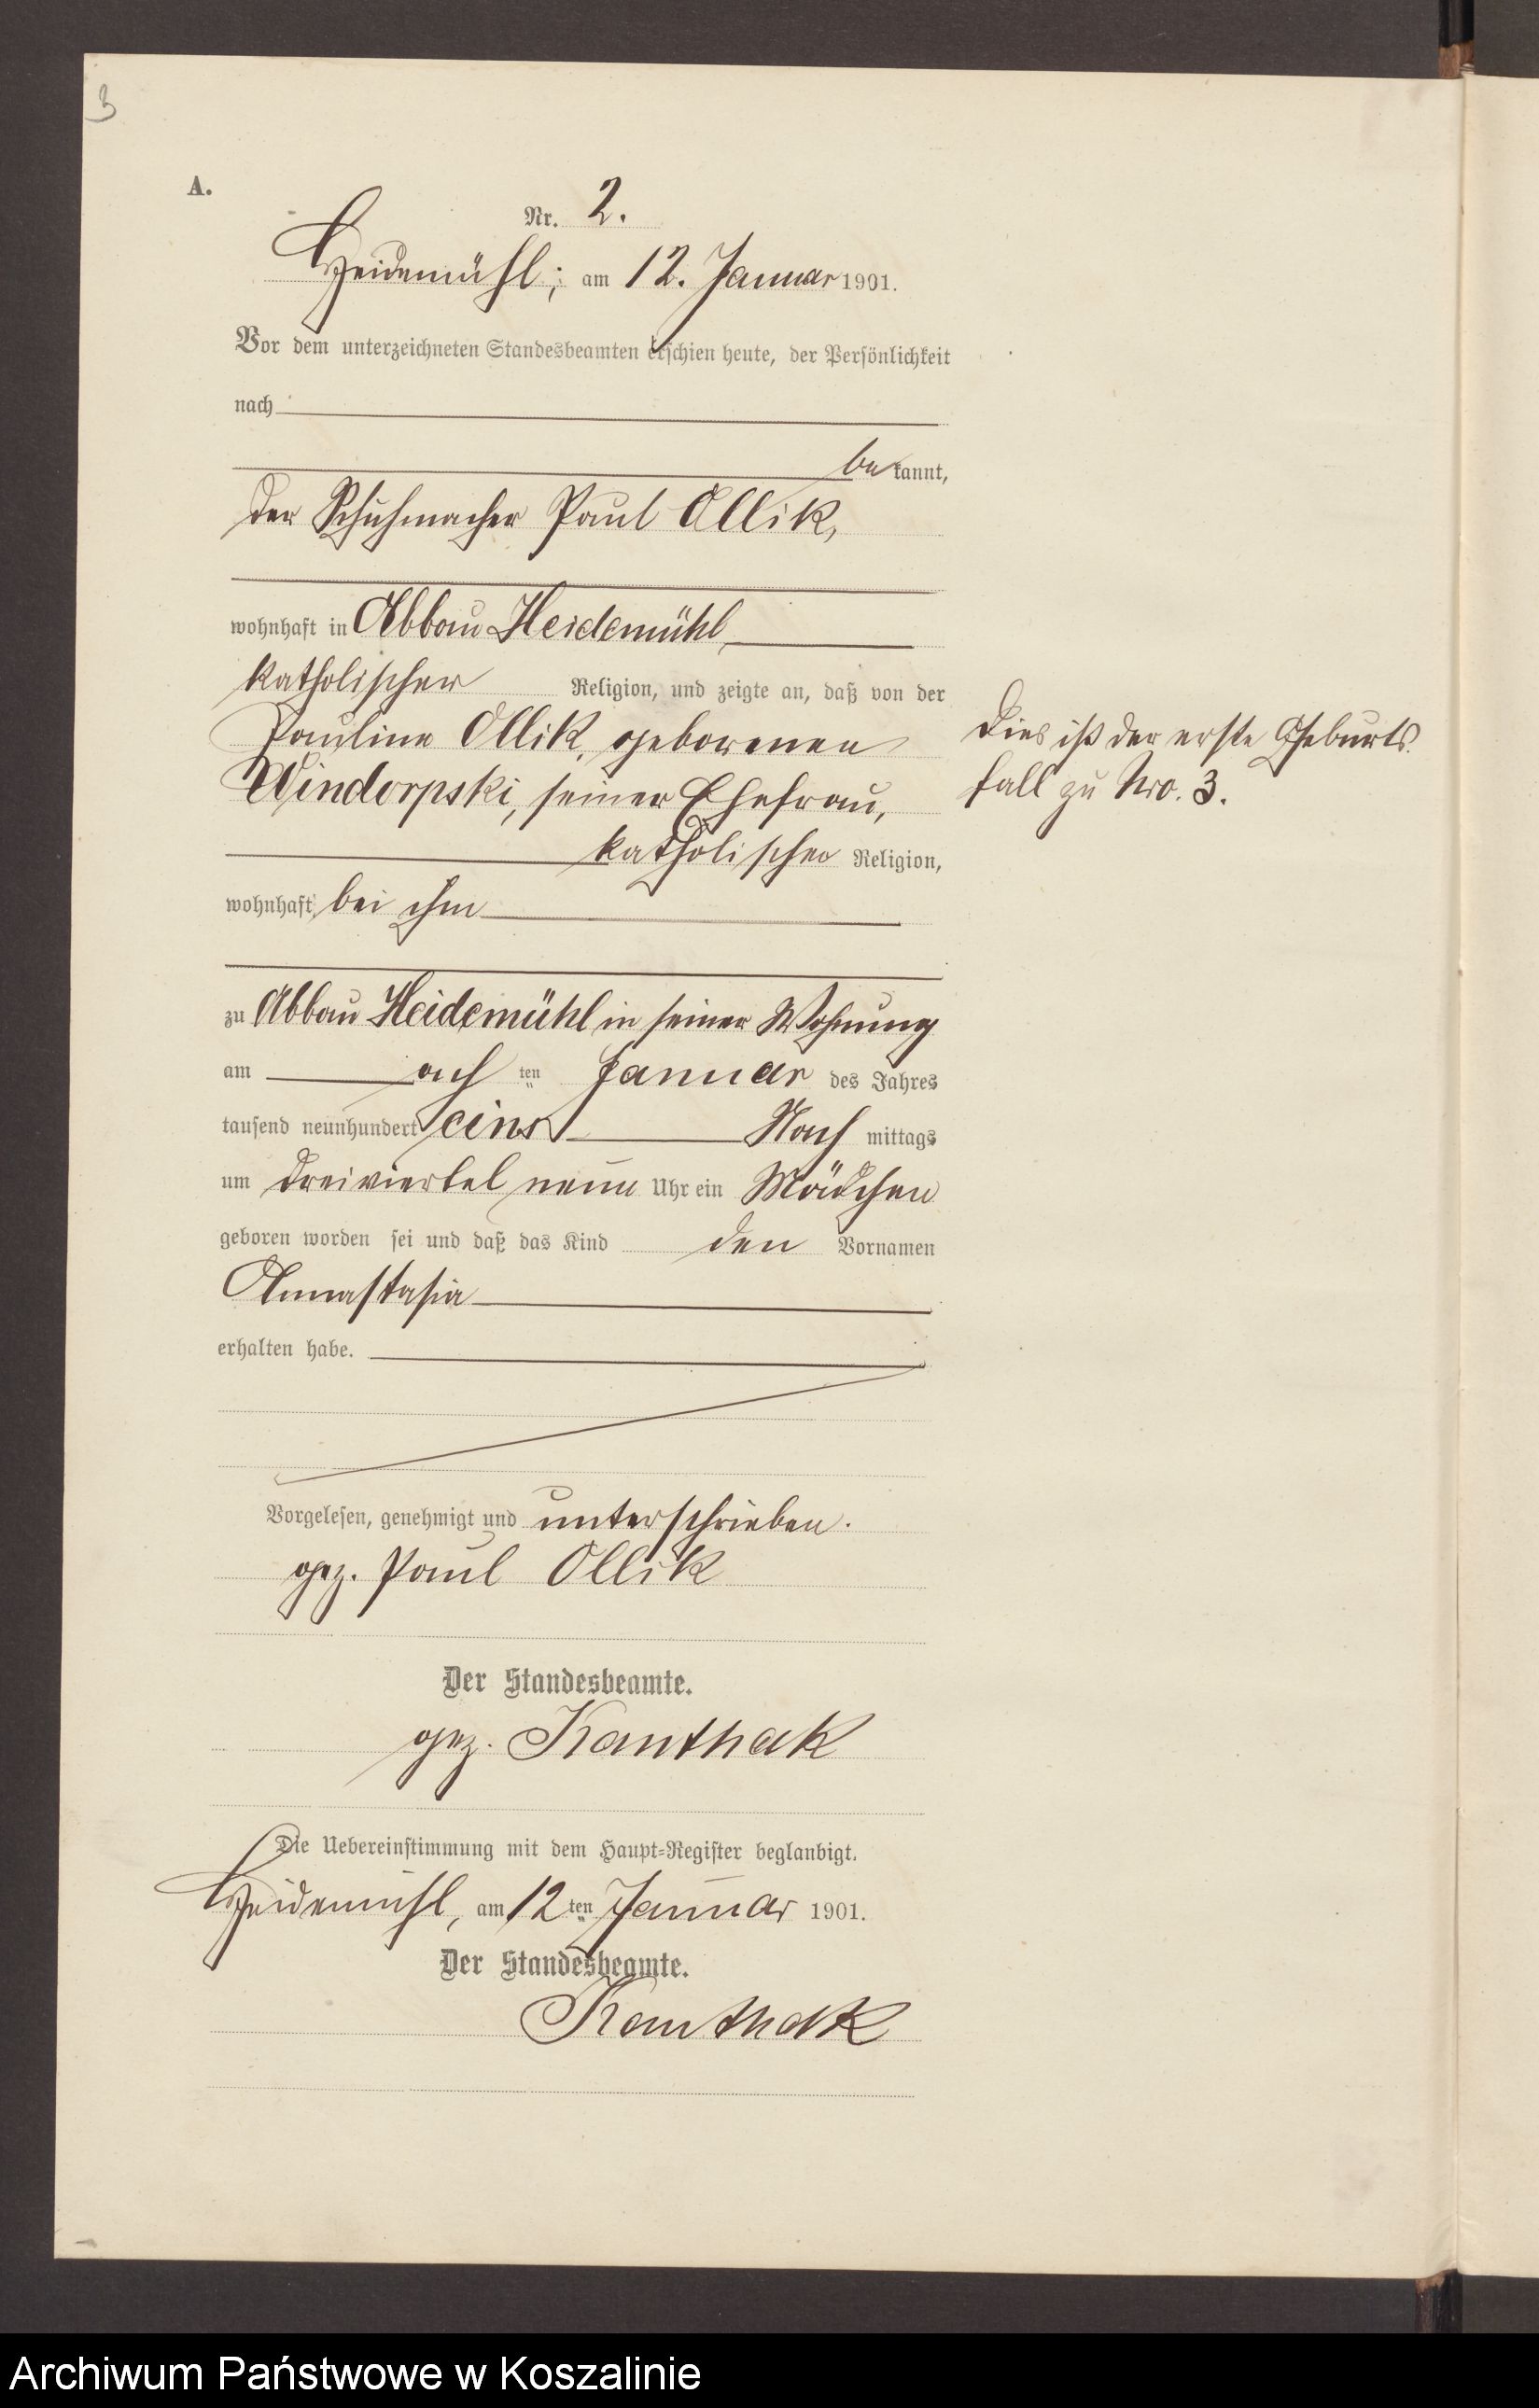 3
A.
Nr. 2.
Heidemühl; am 12. Januar 1901.
Vor dem unterzeichneten Standesbeamten erschien heute, der Persönlichkeit
nach
be kannt,
der Schuhmacher Paul Ollik,
wohnhaft in Abbau Heidemühl,
katholischer Religion, und zeigte an, daß von der
Pauline Ollik, geborenen
Windorpski, seiner Ehefrau,
katholischer Religion,
wohnhaft bei ihm
zu Abbau Heidemühl in seiner Wohnung
am ach ten Januar des Jahres
tausend neunhundert eins Nach mittags
um dreiviertel neun Uhr ein Mädchen
geboren worden sei und daß das Kind den Vornamen
Annastasia
erhalten habe.
Vorgelesen, genehmigt und unterschrieben.
gez. Paul Ollik
Der Standesbeamte.
gez. Kanthak
Die Uebereinstimmung mit dem Haupt-Register beglaubigt.
Heidemühl, am 12ten Januar 1901.
Der Standesbeamte.
Kanthak
Dies ist der erste Geburts
fall zu Nro. 3.
Archiwum Państwowe w Koszalinie